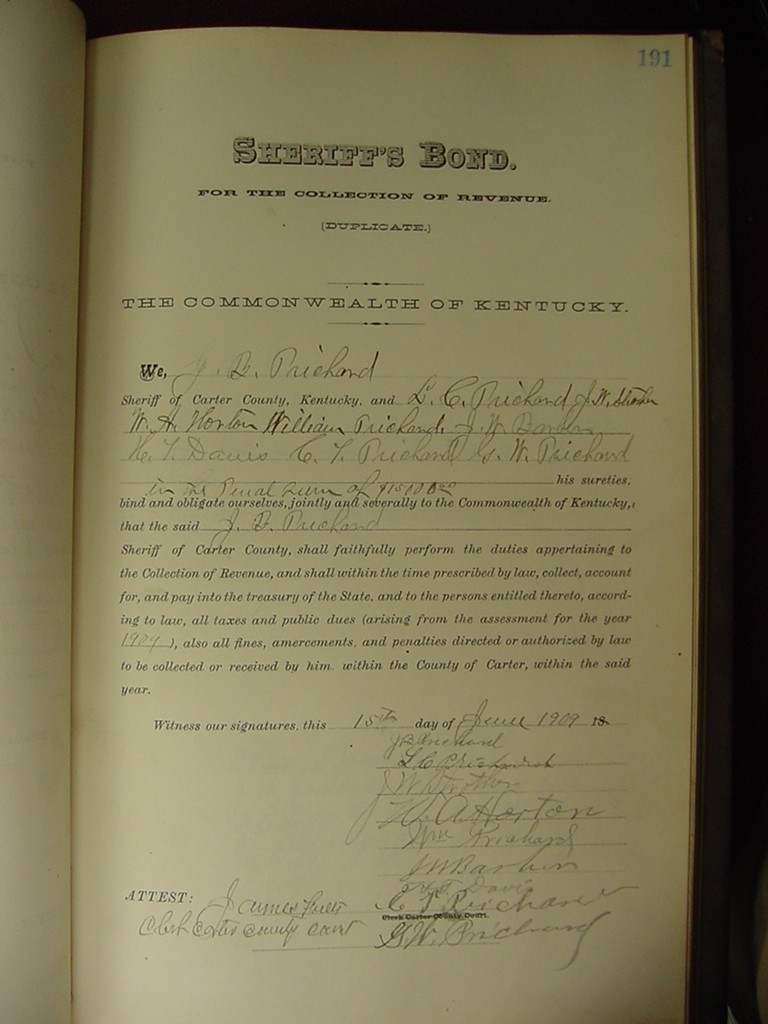 191
SHERIFF'S BOND.
FOR THE COLLECTION OF REVENUE.
[DUPLICATE.]
THE COMMONWEALTH OF KENTUCKY.
We, J. B. Prichard
Sheriff of Carter County, Kentucky, and L. C. Prichard J. W. Strother
W. A. Horton William Prichard, J. W. Barber
H. T. Davis C. T. Prichard G. W. Prichard
in the Penal sum of his sureties,
bind and obligate ourselves, jointly and severally to the Commonwealth of Kentucky,
that the said J. B. Prichard
Sheriff of Carter County, shall faithfully perform the duties appertaining to
the Collection of Revenue, and shall within the time prescribed by law, collect, account
for, and pay into the treasury of the State, and to the persons entitled thereto, accord-
ing to law, all taxes and public dues (arising from the assessment for the year
1909), also all fines, amercements, and penalties directed or authorized by law
to be collected or received by him, within the County of Carter, within the said
year.
Witness our signatures, this 15th day of June 1909 18
J B Prichard
L C Prichard
J W Strother
W. A. Horton
Wm Prichard
J W Barber
H. T. Davis
ATTEST: James C T Prichard
Clerk Carter County Court.
Clerk Carter County Court G. W. Prichard